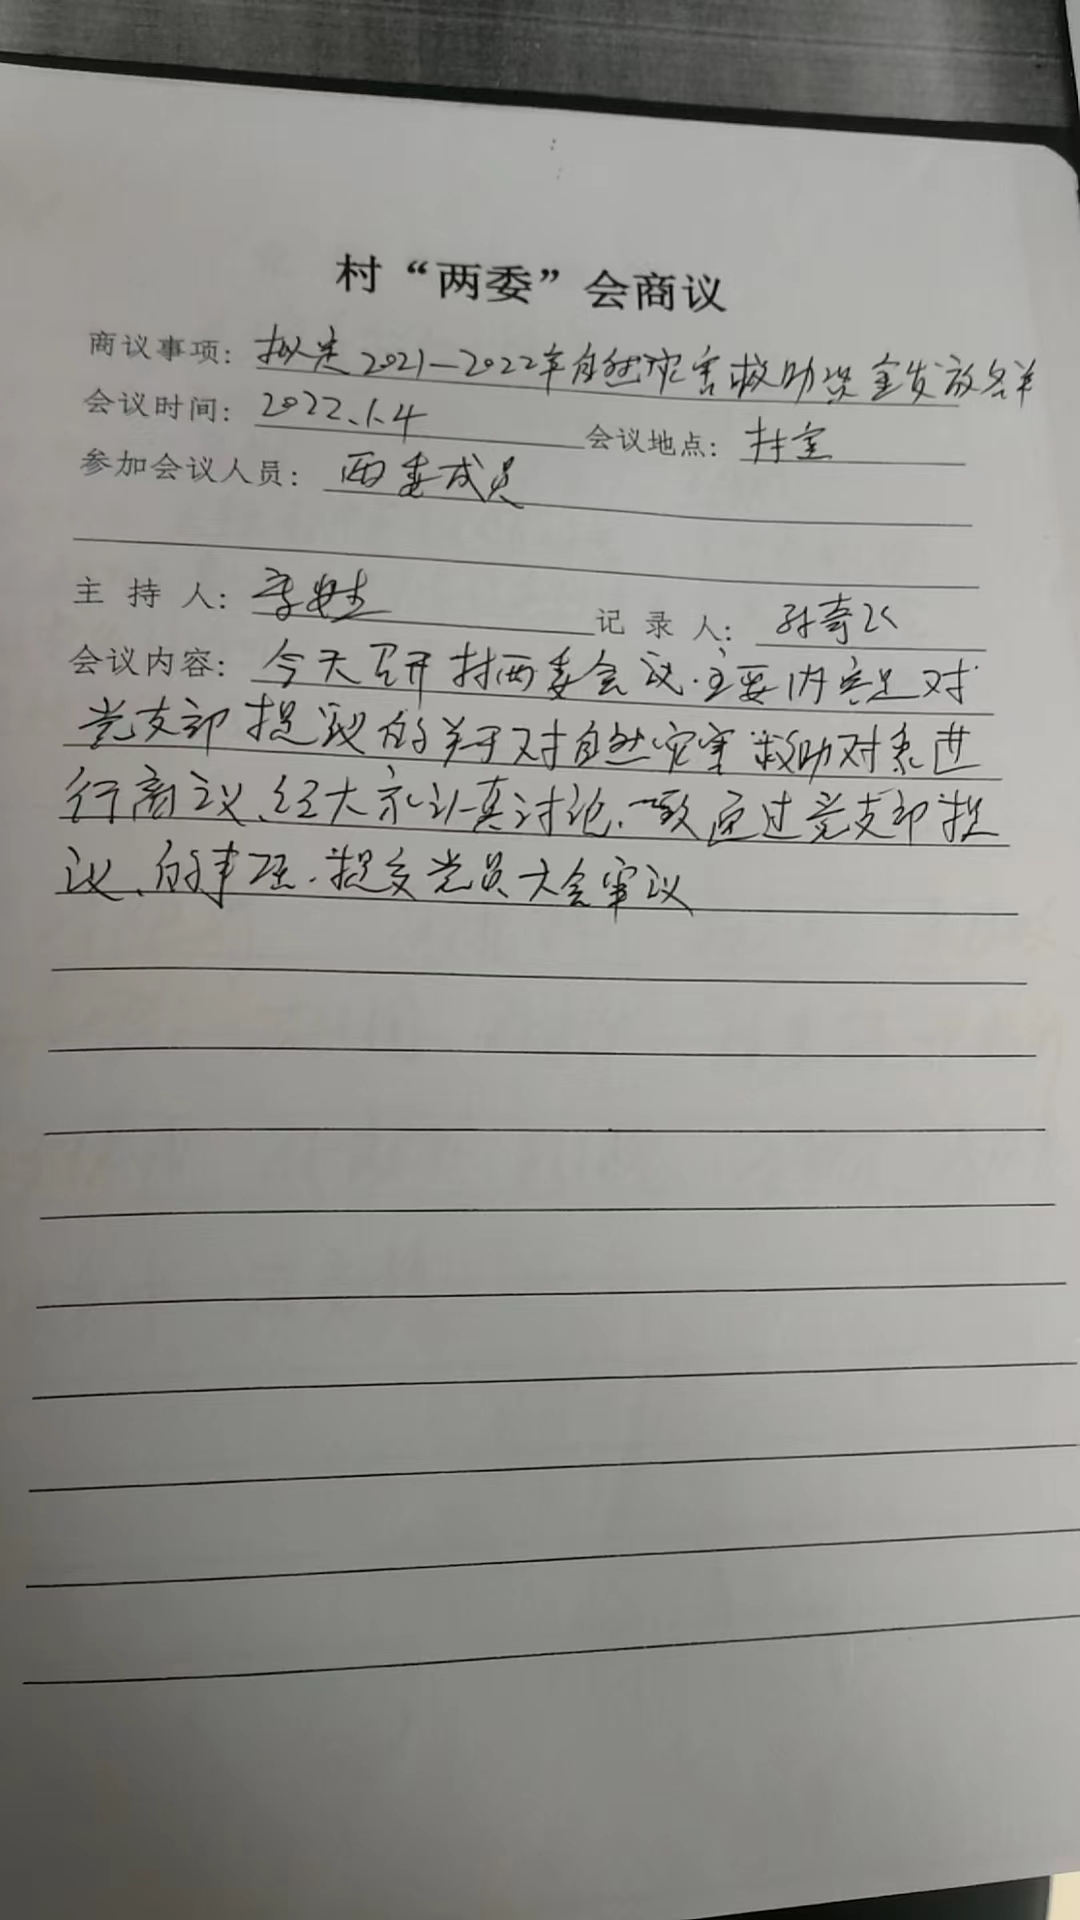 村“两委”会商议
商议事项：拟定2021—2022年自然灾害救助资金发放名单
会议时间：2022.1.4 会议地点：村室
参加会议人员：两委成员
主持人：李 记录人：孙奇
会议内容：今天召开村两委会议.主要内容是对
党支部提议的关于对自然灾害救助对象进
行商议、经大家认真讨论、一致通过党支部提
议、的事项.提交党员大会审议